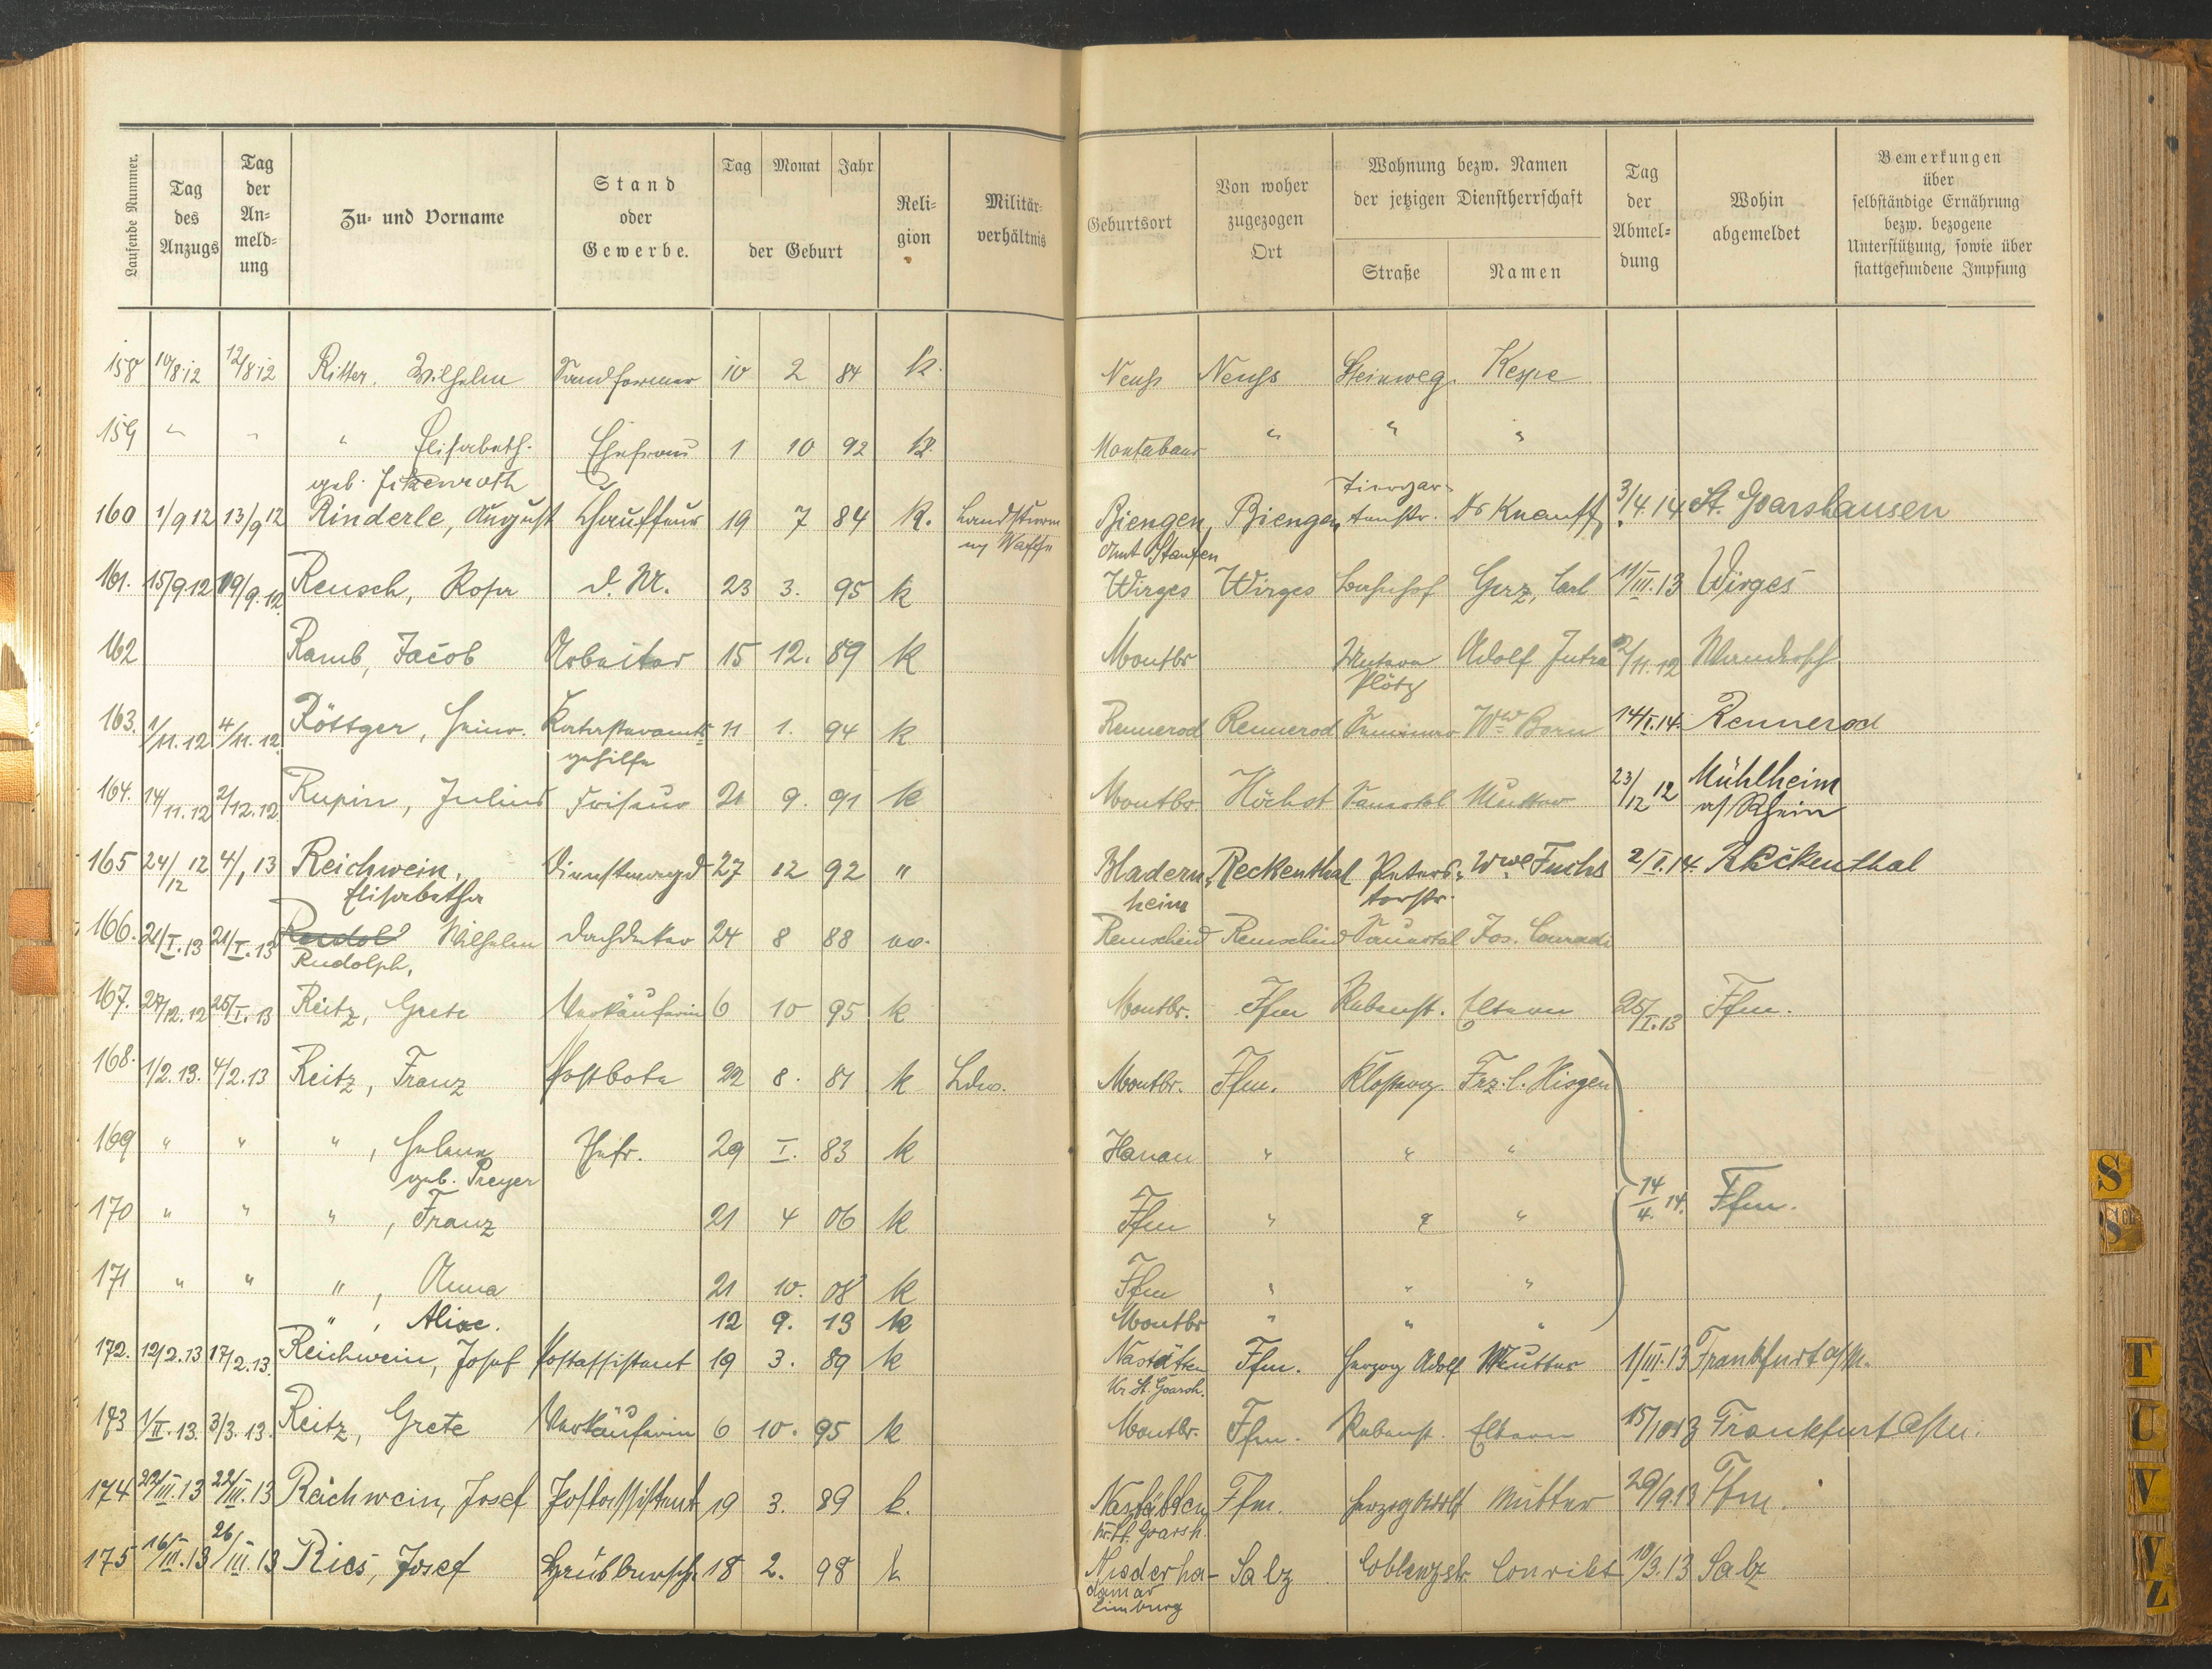 Laufende Nummer. Tag des Anzugs Tag der An=meld=ung Zu= und Vorname Stand oder Gewerbe. Tag Monat Jahr der Geburt Reli=gion Militär=verhältnis Geburtsort Von woher zugezogen Ort Wohnung bezw. Namen der jetzigen Dienstherrschaft Straße Namen Tag der Abmel=dung Wohin abgemeldet Bemerkungen über selbständige Ernährung bezw. bezogene Unterstützung, sowie über stattgefundene Impfung
158 10/8 12 12/8 12 Ritter. Wilhelm Sandformer 10 2 84 k. Neuß Neuß Steinweg. Keppe
159 " " " Elisabeth. Ehefrau 1 10 92 k. Montabaur " " "
geb. Fitzenroth
160 1/9 12 13/9 12 Rinderle, August Chauffeur 19 7 84 k. Landsturm Biengen, Biengen Dr Knauff 3/4.14 St. Goarshausen
Amt Staufen
161. 15/9.12 19/9.12 Reusch, Rosa d. M. 23 3. 95 k Wirges Wirges Bahnhof Gerz, Carl 11/III.13 Wirges
162 Ramb, Jacob Arbeiter 15 12. 89 k Montbr Adolf
163. 1/11.12 4/11.12. Röttger, Heinr. Katasteramts 11 1. 94 k Rennerod Rennerod Wwe Born 14/I.14. Rennerod
gehilfe
164. 14/11.12 2/12.12. Rupin, Julius Friseur 21 9. 91 k Montbr. Höchst Sauertal Mutter 23/12 12 Mühlheim
a/Rhein
165 24/12 12 4/1 13 Reichwein, Dienstmagd 27 12 92 " Bladern= Reckenthal Peters= Wwe Fuchs 2/I.14. Reckenthal
Elisabetha heim torstr.
166. 21/I.13 21/I.13 Wilhelm Dachdecker 24 8 88 ev. Remscheid Remscheid Sauertal Jos. Conradi
Rudolph,
167. 27/12.12 25/I.13 Reitz, Grete Verkäuferin 6 10 95 k Montbr. Ffm Rebenst. Eltern 25/I.13 Ffm.
168. 1/2.13. 4/2.13 Reitz, Franz Postbote 22 8. 81 k Ldw. Montbr. Ffm. Frz. C. Hisgen
169 " " ", Helene Ehefr. 29 I. 83 k Hanau " " "
geb. Preyer
170 " " ", Franz 21 4 06 k Ffm " " " 14/4. 14. Ffm.
171 " " ", Anna 21 10. 08 k Ffm " " "
", Alice. 12 9. 13 k Montbr " " "
172. 12/2.13 17/2.13. Reichwein, Josef Postassistent 19 3. 89 k Nastätten Ffm. Herzog Adolf Mutter 1/III.13 Frankfurt a/M.
Kr St. Goarsh.
173 1/II.13. 3/3.13. Reitz, Grete Verkäuferin 6 10. 95 k Montbr. Ffm. Rebenst. Eltern 15/10 13 Frankfurt a/M.
174 22/III.13 22/III.13 Reichwein, Josef Postassistent 19 3. 89 k. Nastätten Ffm. Herzog Adolf Mutter 29/9.13 Ffm.
Kr. St. Goarsh.
175 16/III.13 26/III.13 Ries, Josef 18 2. 98 k Niederha- Salz Coblenzstr. Convikt 10/3.13 Salz
damar
Limburg
S
Sch
T
U
V
Z